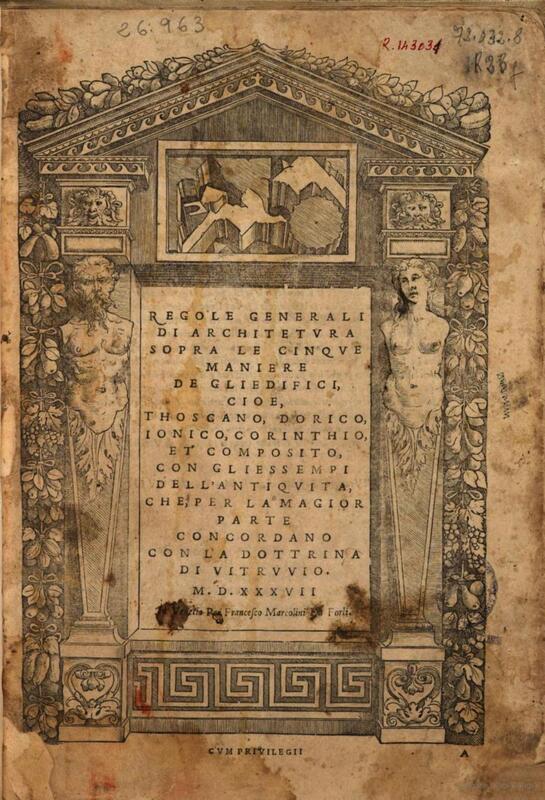 26:963
R.143031
REGOLE GENERALI
DI ARCHITETVRA
SOPRA LE CINQVE
MANIERE
DE GLIEDIFICI,
CIOE,
THOSCANO, DORICO,
IONICO, CORINTHIO,
ET COMPOSITO,
CON GLIESSEMPI
DELL'ANTIQVITA,
CHE, PER LA MAGIOR
PARTE
CONCORDANO
CON LA DOTTRINA
DI VITRVVIO.
M. D. XXXVII
Francesco Marcolini Forli.
CVM PRIVILEGII
A